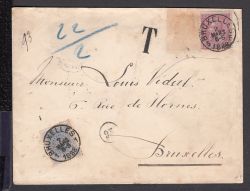 93
22/2
T
BRUXELLES
Monsieur Louis Vidal
6 Rue de Hornes
Bruxelles
BRUXELLES